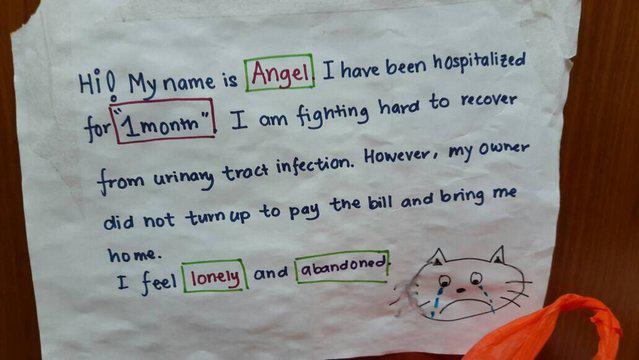 Hi! My name is Angel. I have been hospitalized
for "1 month". I am fighting hard to recover
from urinary tract infection. However, my owner
did not turn up to pay the bill and bring me
home.
I feel lonely and abandoned.